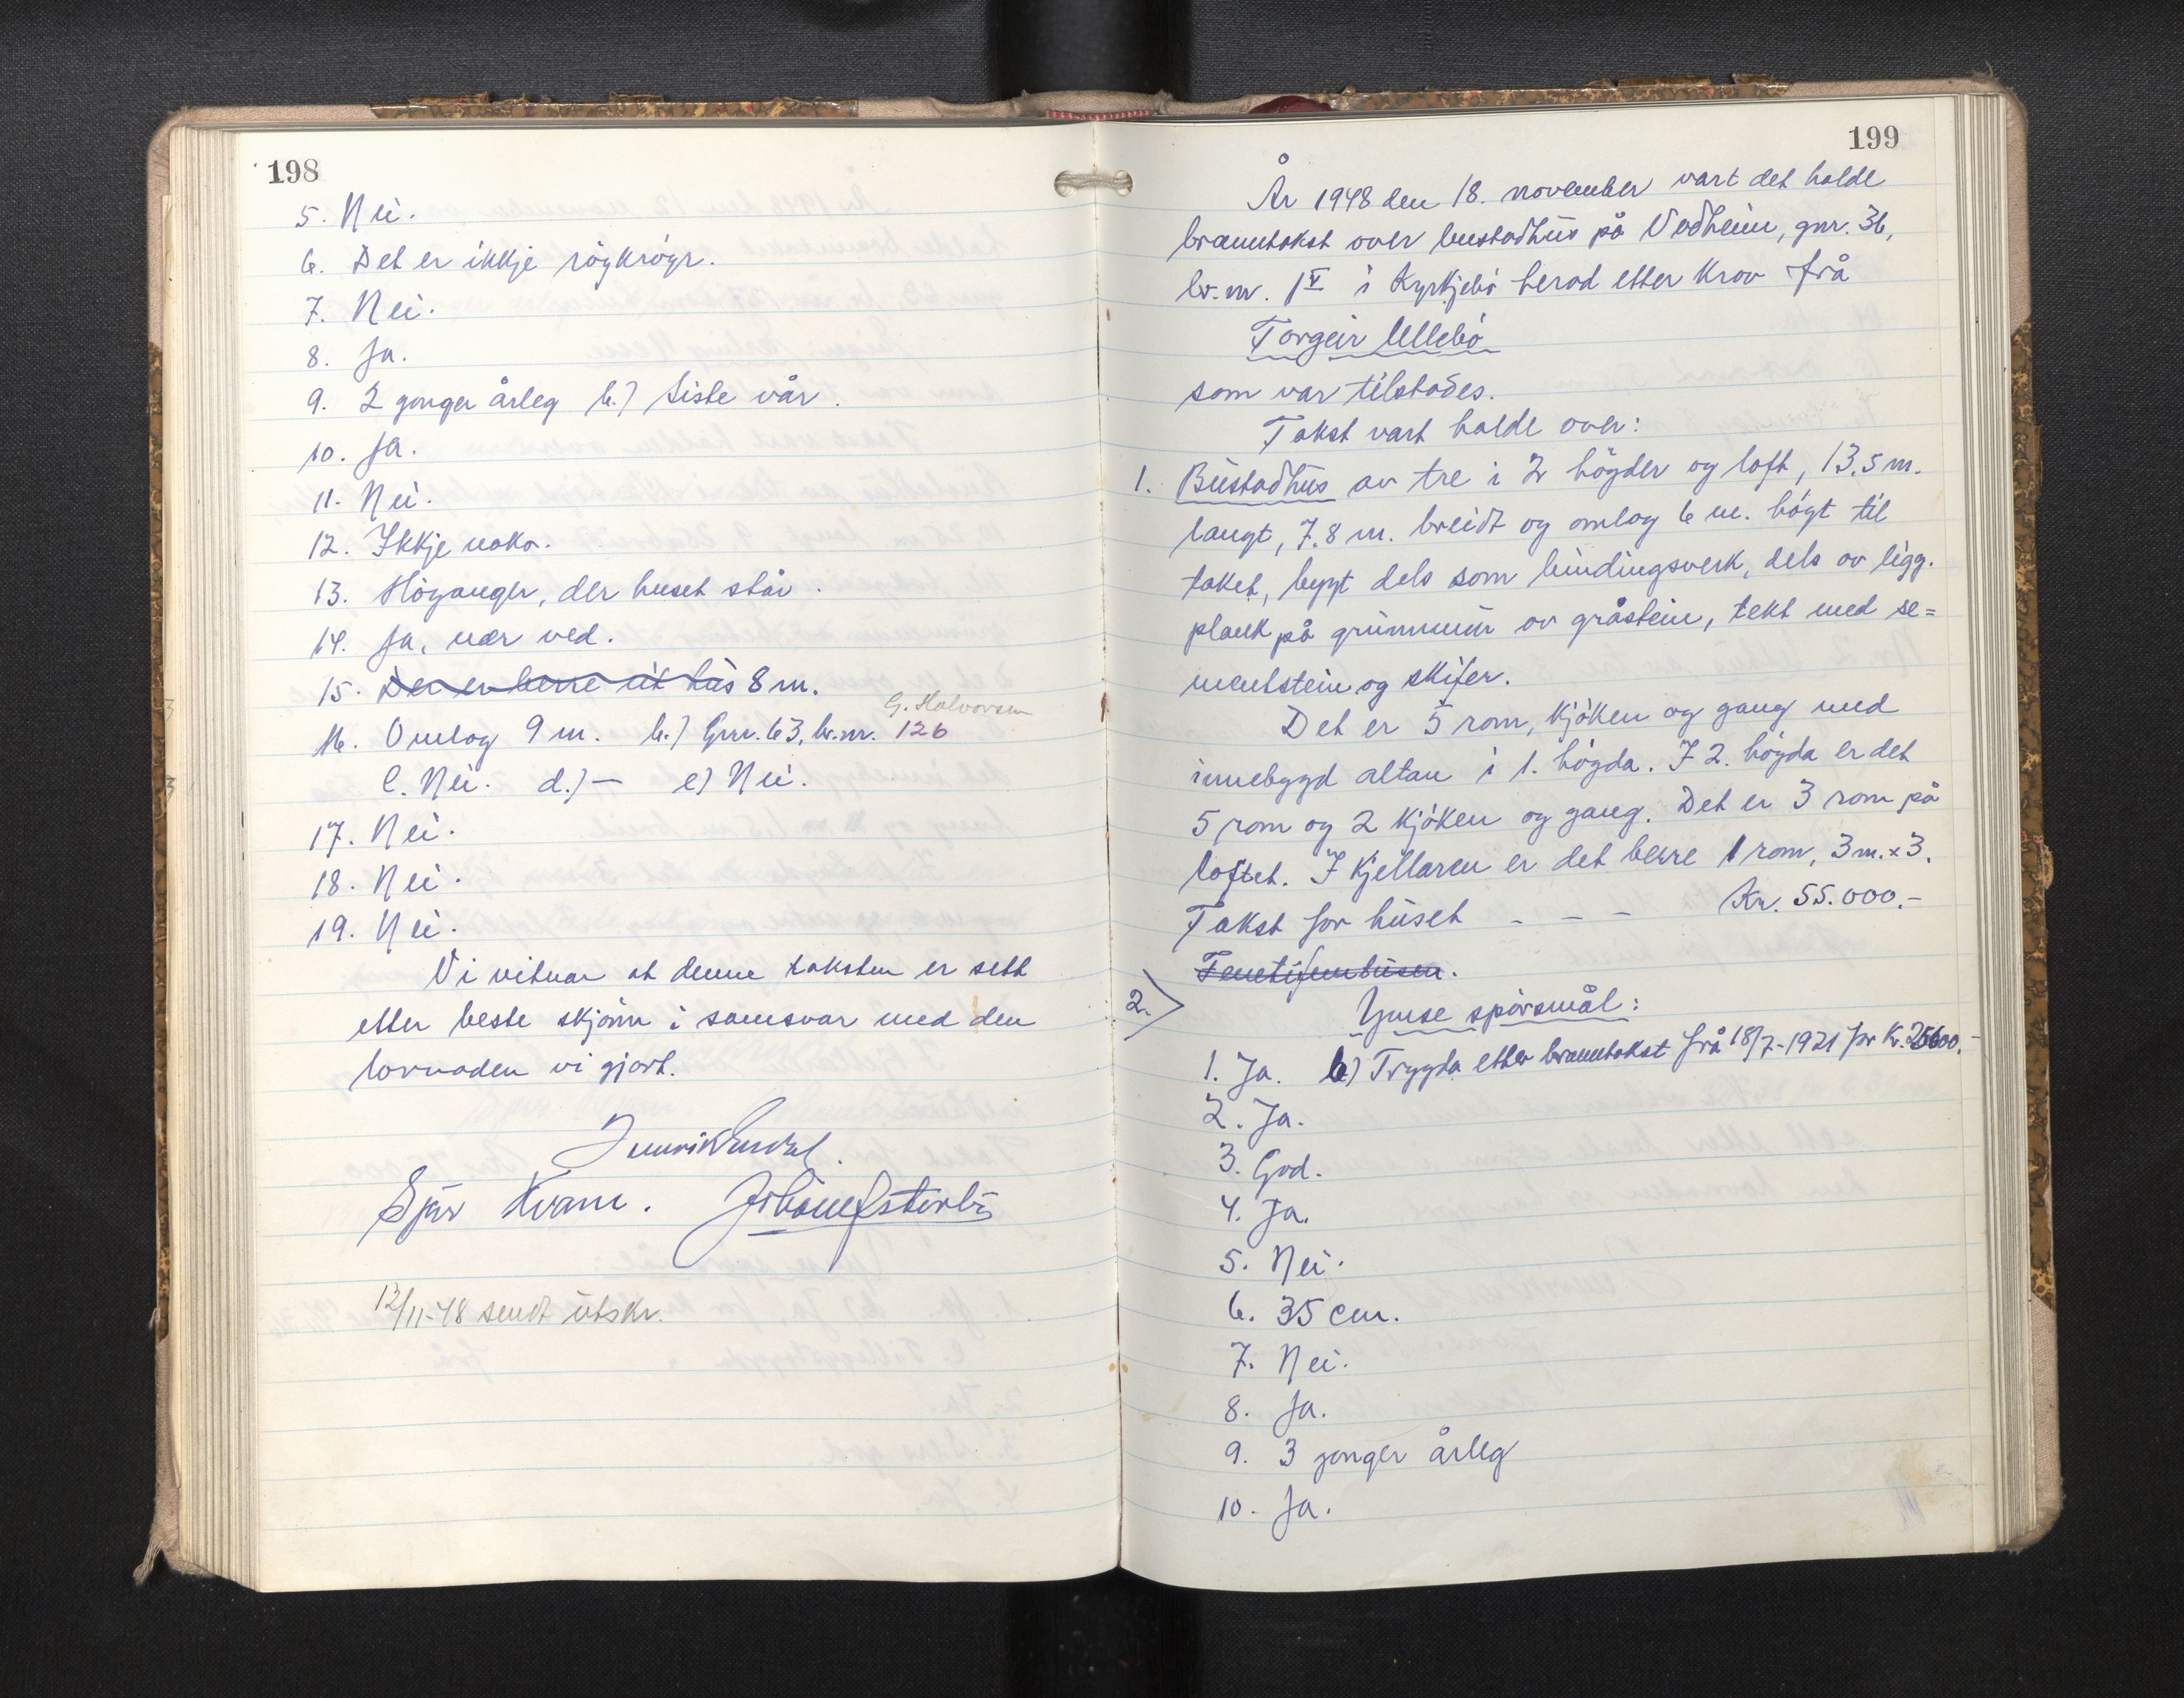 198
5. Nei.
6. Det er ikkje røykrøyr.
7. Nei.
8. Ja.
9. 2 gonger årleg b.) Siste vår.
10. Ja.
11. Nei.
12. Ikkje noko.
13. Höyanger, der huset står.
14. Ja, nær ved.
15. Der er berre eit hus 8 m.
G. Halvorsen
16. Omlag 9 m. b.) Gnr. 63, br.nr. 126
C. Nei. d.) — e) Nei.
17. Nei.
18. Nei.
19. Nei.
Vi vitnar at denne taksten er sett
etter beste skjönn i samsvar med den
lovnaden vi gjort.
Sjur Kvam.
12/11-48 sendt utskr.
199
År 1948 den 18. november vart det halde
branntakst over bustadhus på Vadheim, gnr. 36,
br.nr. 1 V i Kyrkjebö herad etter krav frå
Torgeir Ullebö
som var tilstades.
Takst vart halde over:
1. Bustadhus av tre i 2 högder og loft, 13,5 m.
langt, 7.8 m. breidt og omlag 6 m. högt til
taket, bygt dels som bindingsverk, dels av ligg.
plank på grunnmur av gråstein, tekt med se=
mentstein og skifer.
Det er 5 rom, kjöken og gang med
innebygd altan i 1. högda. I 2. högda er det
5 rom og 2 kjöken og gang. Det er 3 rom på
loftet. I kjellaren er det berre 1 rom, 3 m. x 3.
Takst for huset - - - Kr. 55.000.-
Femtifemtusen.
2.
Ymse spörsmål:
1. Ja. b) Trygda etter branntakst frå 18/7-1921 for Kr. 25600.-
2. Ja.
3. God.
4. Ja.
5. Nei.
6. 35 cm.
7. Nei.
8. Ja.
9. 3 gonger årleg
10. Ja.